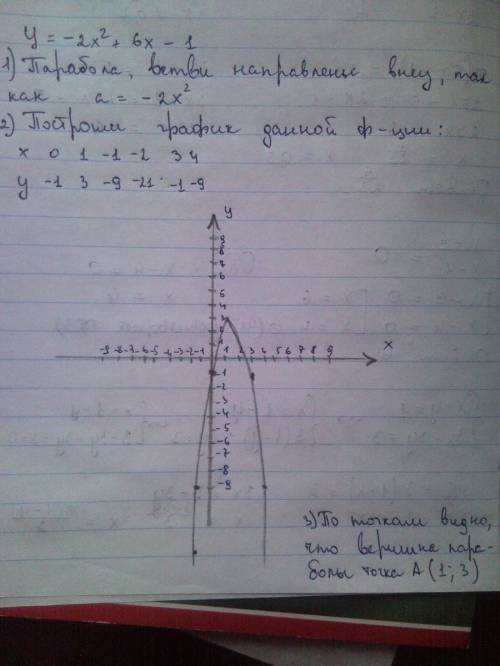 y = -2x² + 6x - 1
1) Парабола, ветви направлены вниз, так
как a = -2x²
2) Построим график данной ф-ции:
x 0 1 -1 -2 3 4
y -1 3 -9 -21 -1 -9
y
9
8
7
6
5
4
3
2
1
x
-9 -8 -7 -6 -5 -4 -3 -2 -1 1 2 3 4 5 6 7 8 9
-1
-2
-3
-4
-5
-6
-7
-8
-9
3) По точкам видно,
что вершина пара-
болы точка A (1; 3)